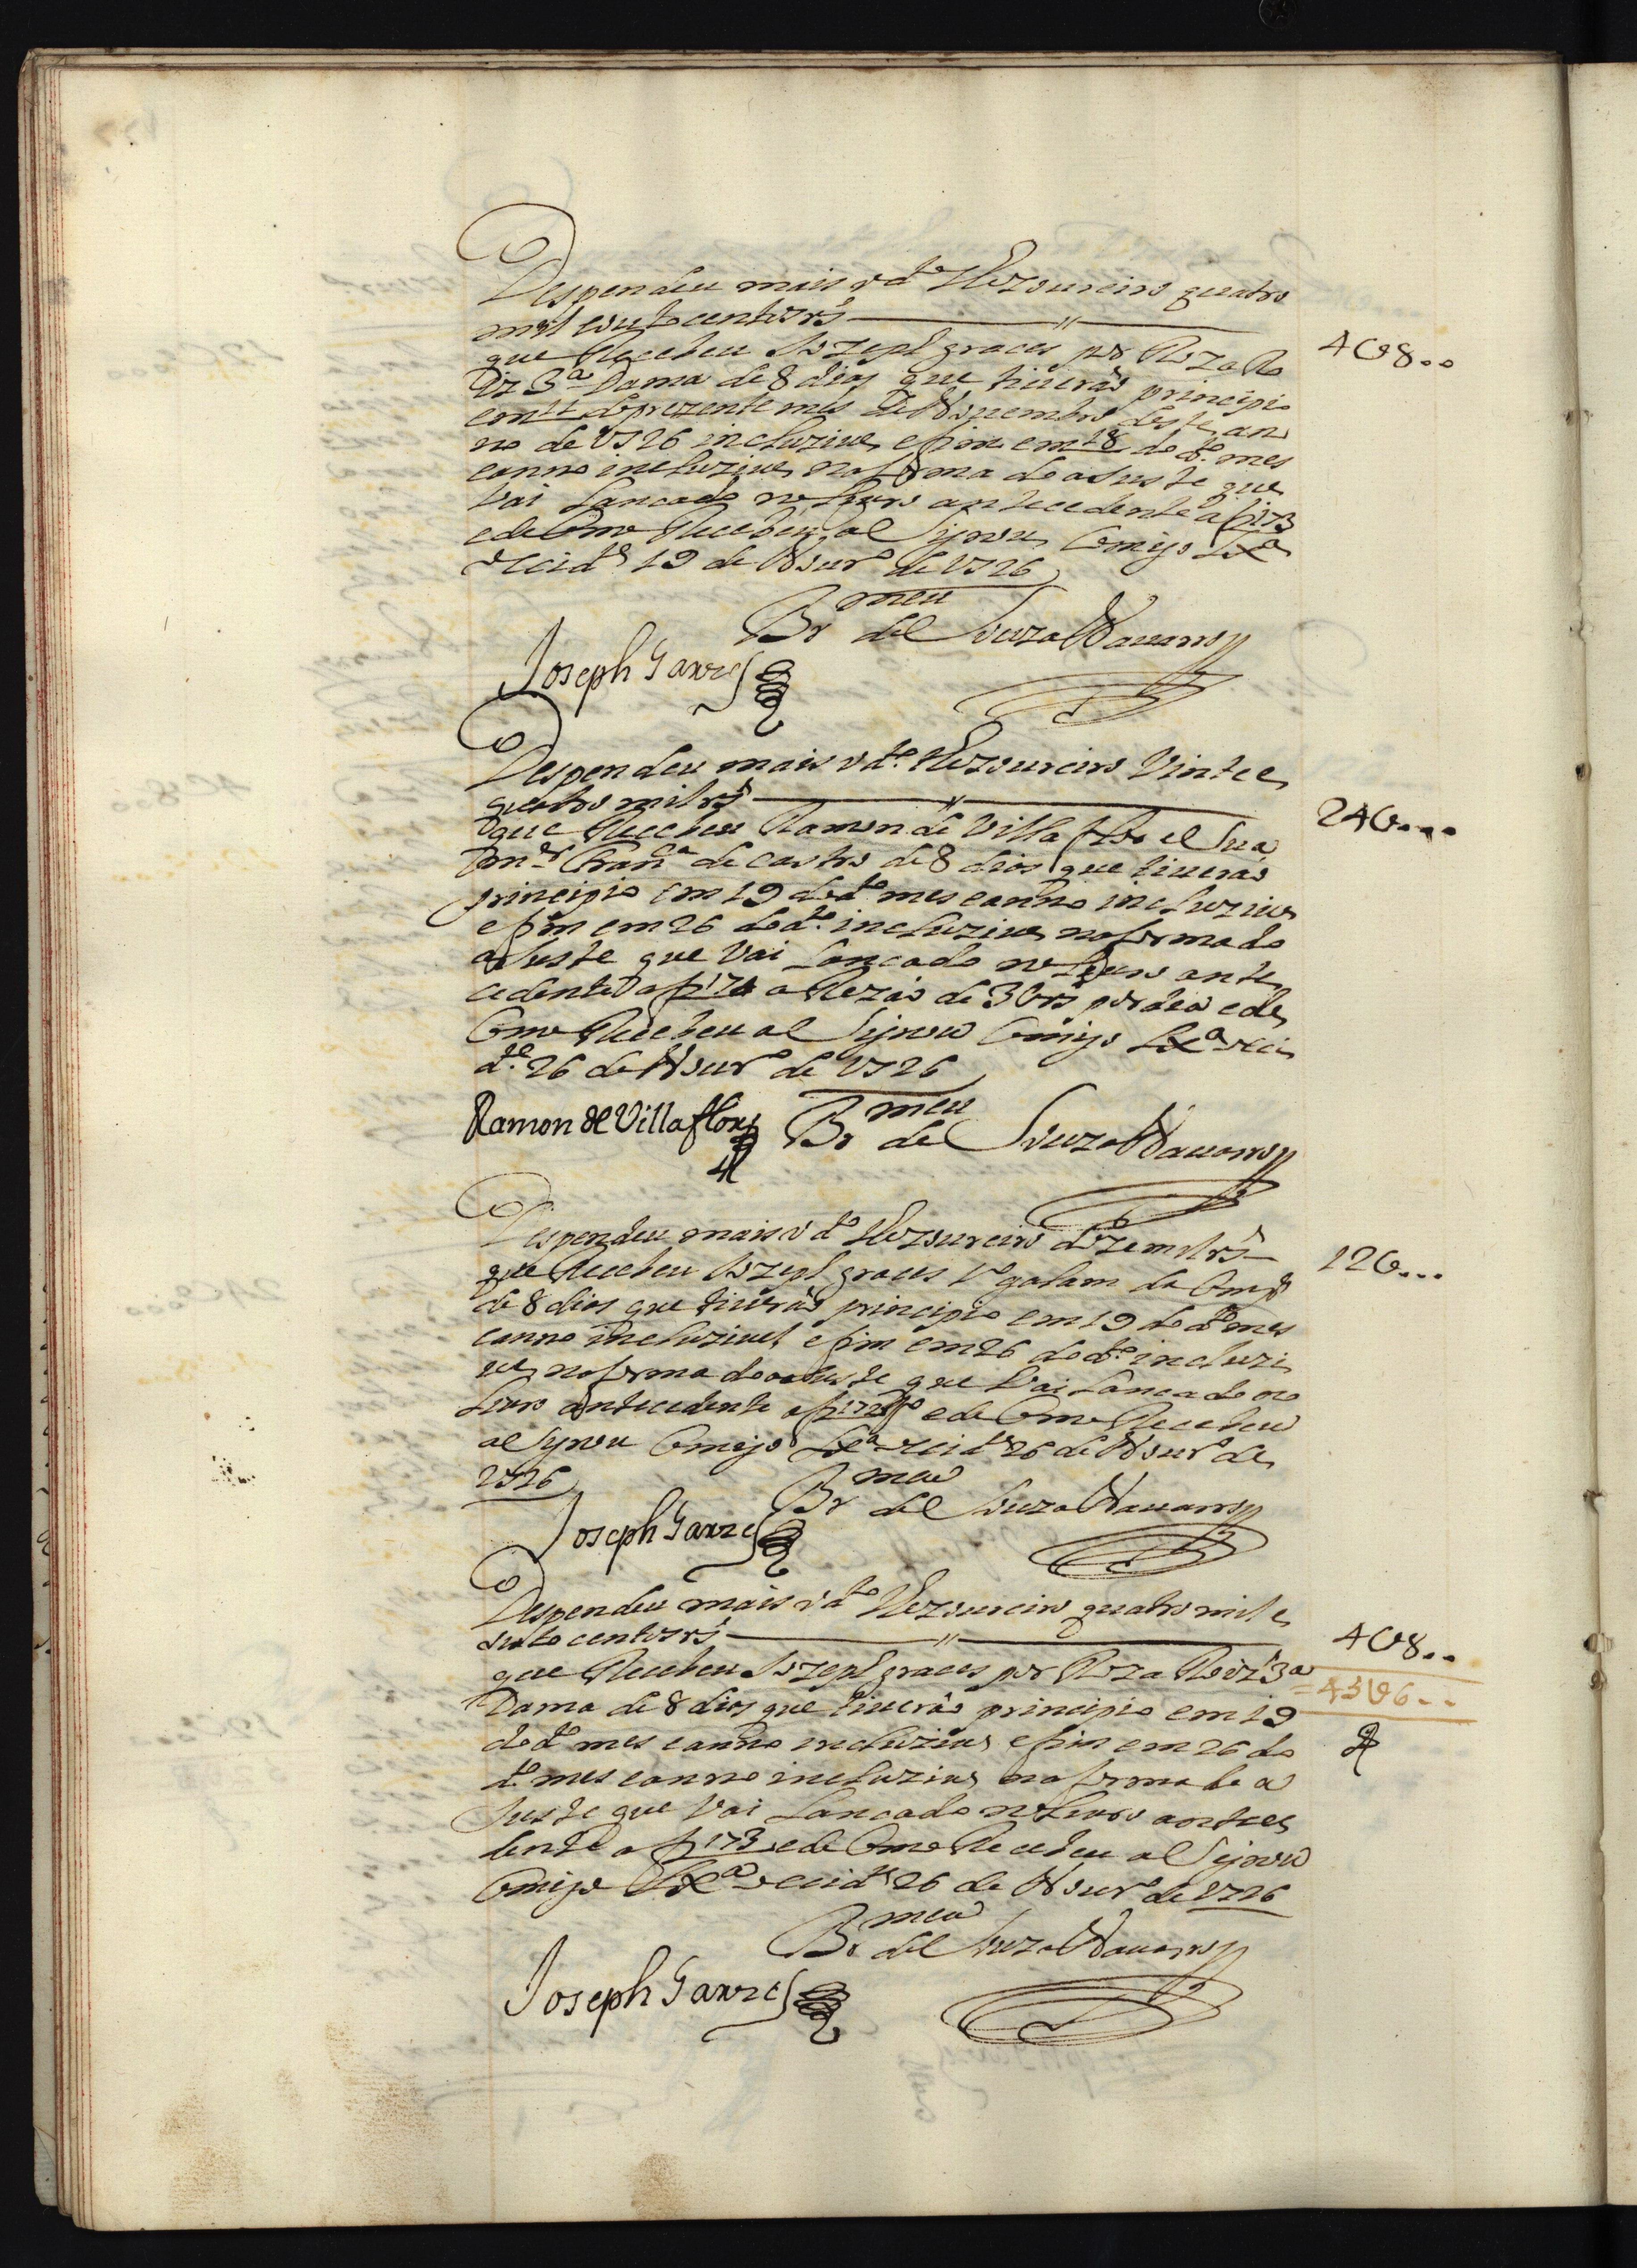 Despendeu mais o dto Thezoureiro quatro
mil e outo centos rs
4U8..
que Recebeu Jozeph graces por Roza Ro
driz 3a Dama de 8 dias que tiuerão principio
em 11 do prezente mes de Nouembro deste an
no de 1726 incluziue e fim em 18 do dto mes
e anno incluziue na forma do aJuste que
Vai Lançado no Liuro antecedente a f 173
e de Como Recebeu al Signou Comigo Lxa
occidtal 19 de Nour.o de 1726
Brmeu de Souza Nauarro
Joseph Garzes
Despendeu mais o dto. Thezoureiro Vinte e
quatro mil rs
24U...
que Recebeu Ramon de Villa flor e Sua
m.er Franca de castro de 8 dias que tiuerão
principio em 19 do dto mes e anno incluziue
e fim em 26 do dto. incluziue na forma do
aJuste que Vai Lançado no Liuro ante
cedente a f 171 a Rezão de 3U rs por dia e de
Como Recebeu al Signou Comigo Lxa occi
dtal. 26 de Nour.o de 1726
Ramon de Villaflor
Brmeu de Souza Nauarro
Despendeu mais o dto Thezoureiro doze mil rs
12U...
que Recebeu Jozeph graces 1o galam da Compa
de 8 dias que tiuerão principio em 19 do dto mes
e anno incluziue e fim em 26 do dto. incluzi
ue na forma do aJuste que Vai Lançado no
Liuro antecedente a f 172 e de Como Recebeu
al Signou Comigo Lxa occidtal 26 de Nour.o de
1726
Brmeu de Souza Nauarro
Joseph Garzes
Despendeu mais o dto Thezoureiro quatro mil e
outo centos rs
4U8..
que Recebeu Jozeph graces por Roza Rodriz 3a
=45U6..
Dama de 8 dias que tiuerão principio em 19
do dto mes e anno incluziue e fim em 26 do
dto. mes e anno incluziue na forma do a
Juste que Vai Lançado no Liuro antece
dente a f 173 e de Como Recebeu al Signou
Comigo Lxa occidtal 26 de Nour.o de 1726
Brmeu de Souza Nauarro
Joseph Garzes